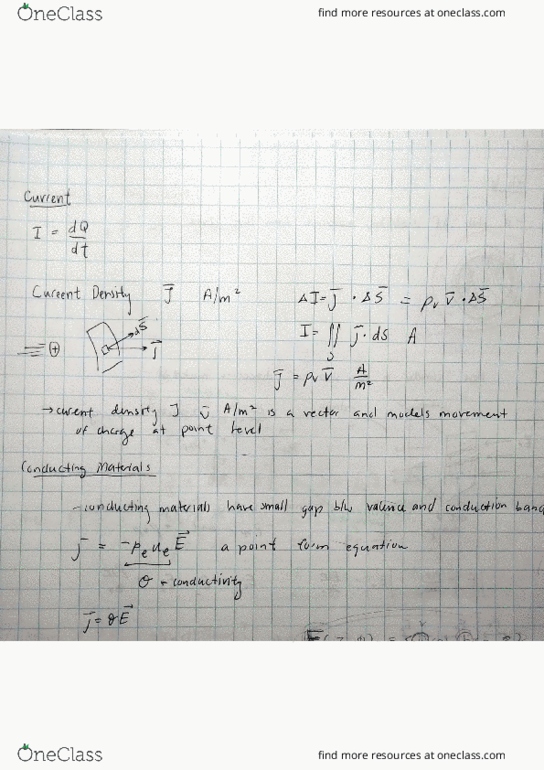 OneClass find more resources at oneclass.com
Current
I = dQ/dt
Current Density J̄ A/m²
ΔI = J̄ · ΔS̄ = ρv v̄ · ΔS̄
I = ∬ J̄ · ds A
S
ΔS̄
⊕ J̄
J̄ = ρv v̄ A/m²
→ current density J A/m² is a vector and models movement
of charge at point level
Conducting Materials
- conducting materials have small gap b/w valence and conduction band
J̄ = -ρe ue E⃗ a point form equation
σ → conductivity
J̄ = σE⃗
OneClass find more resources at oneclass.com